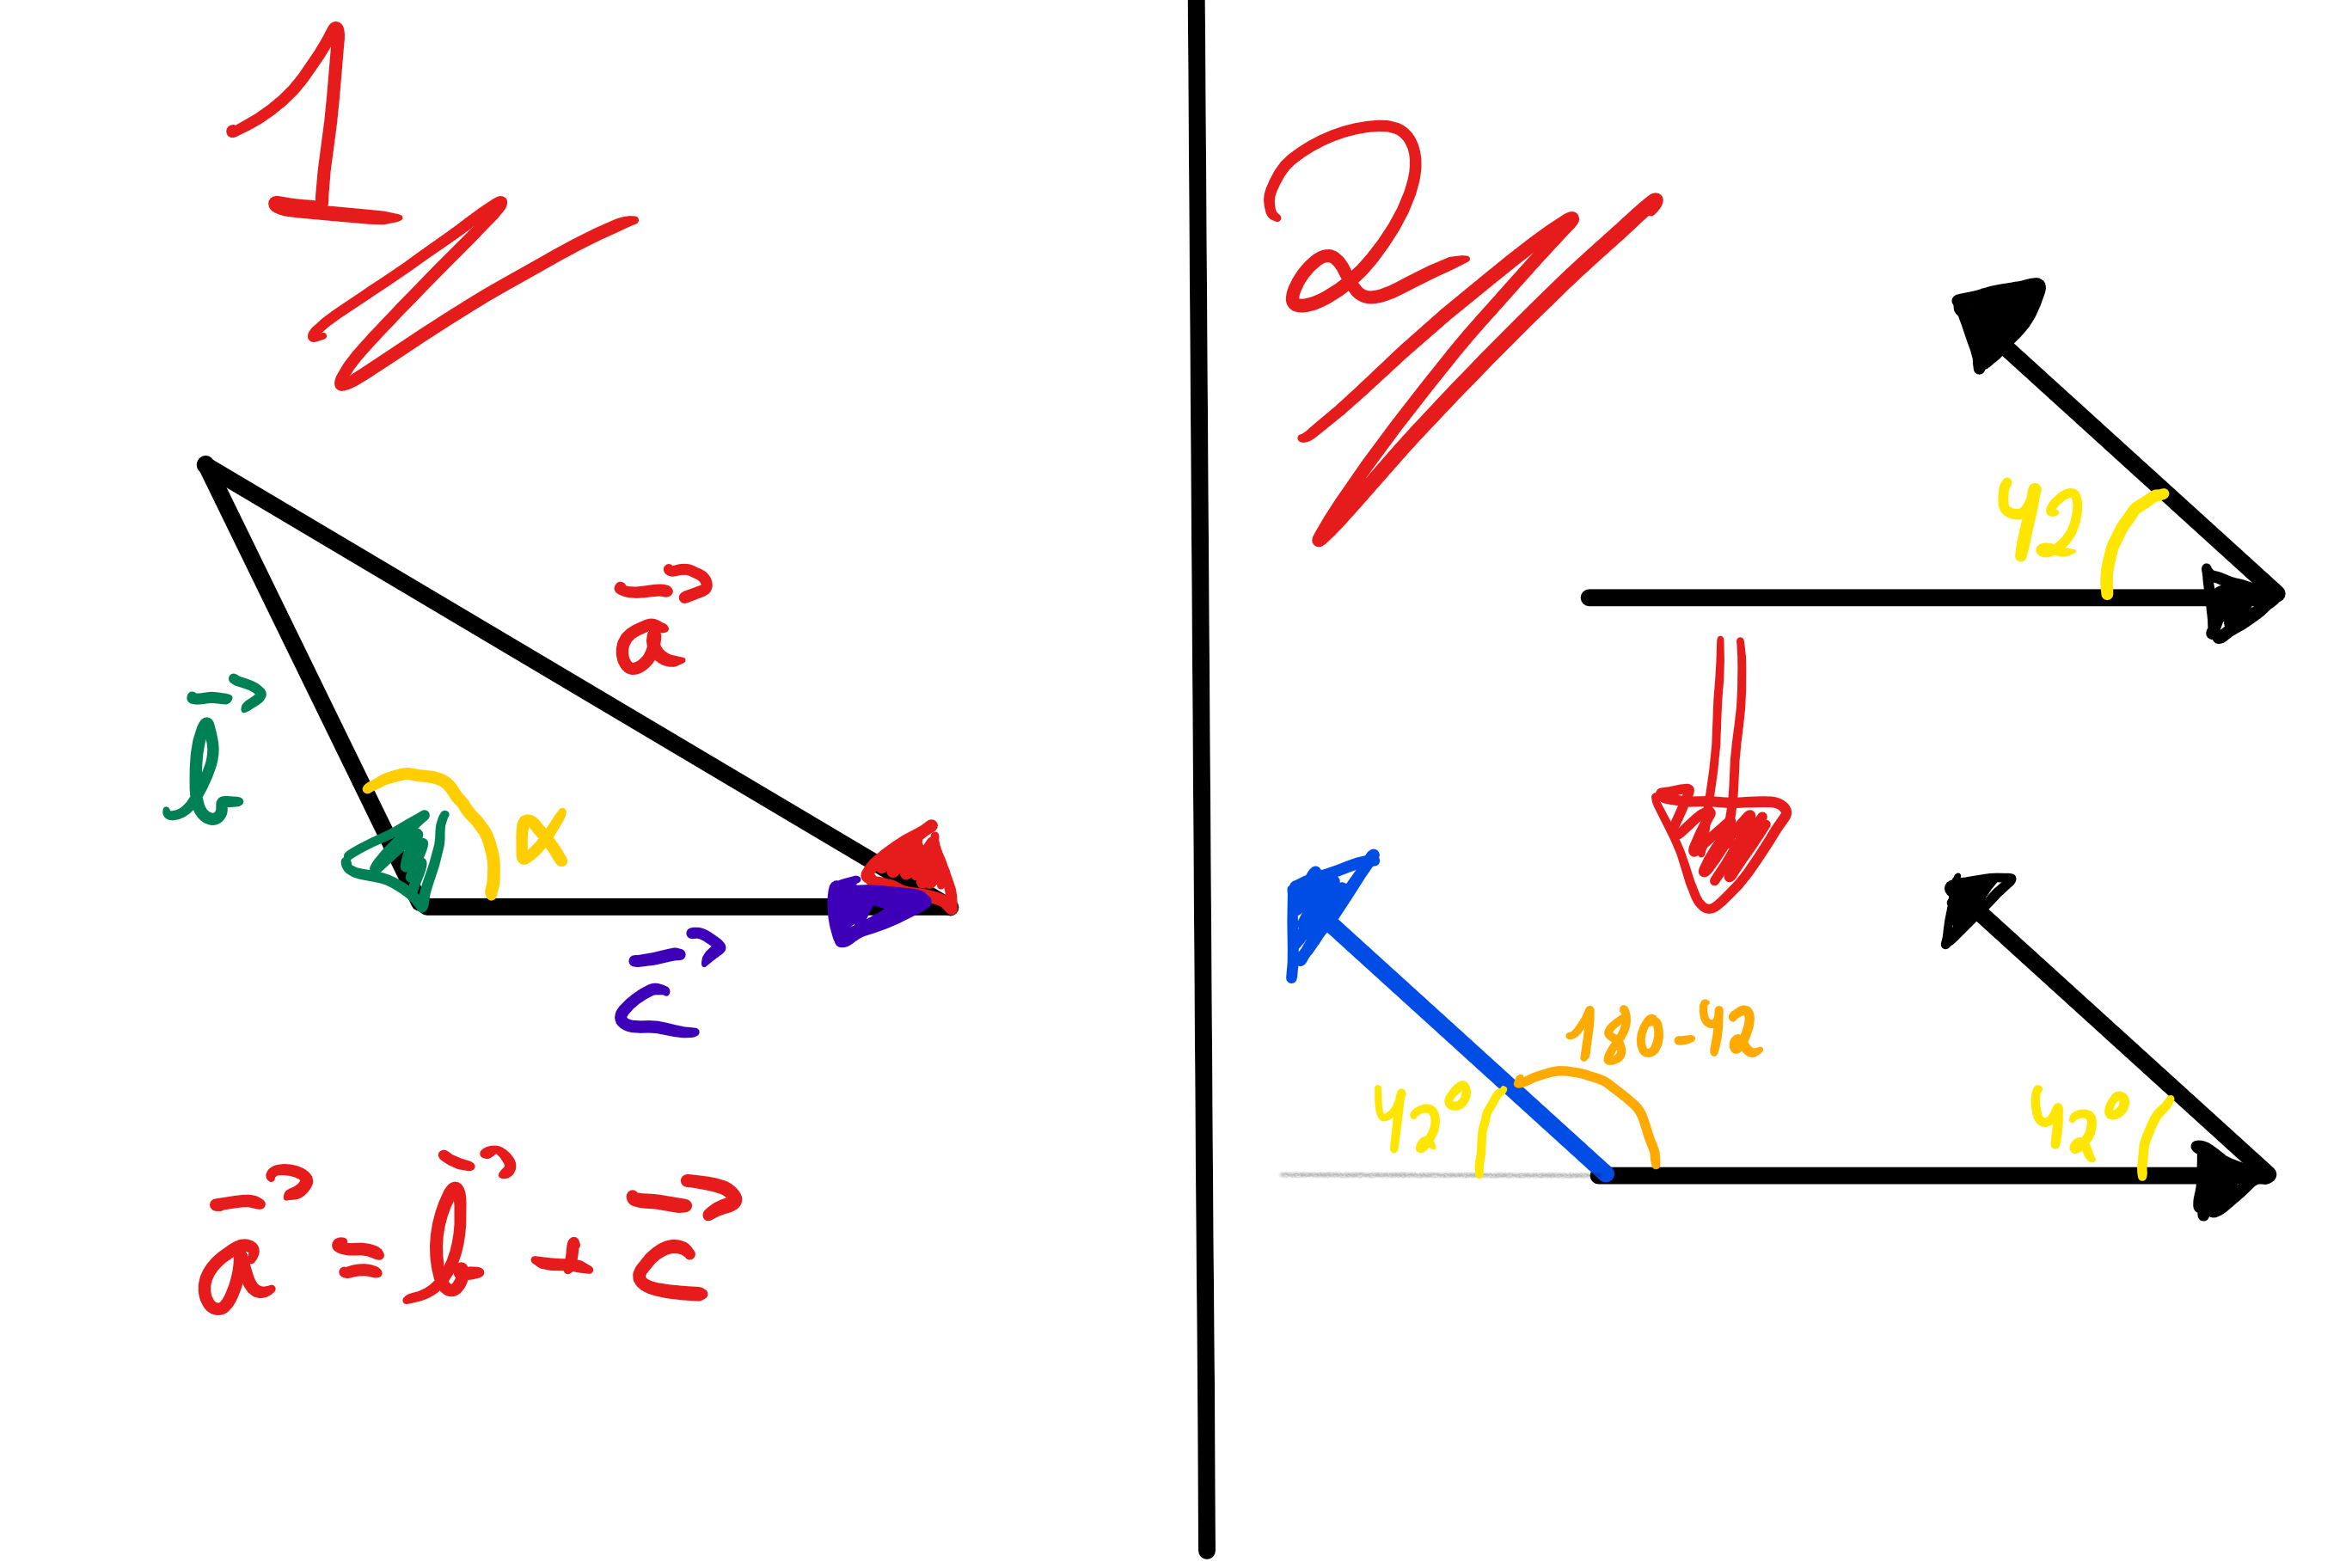 1
a⃗
b⃗
α
c⃗
a⃗ = b⃗ + c⃗
2
42
180-42
42°
42°